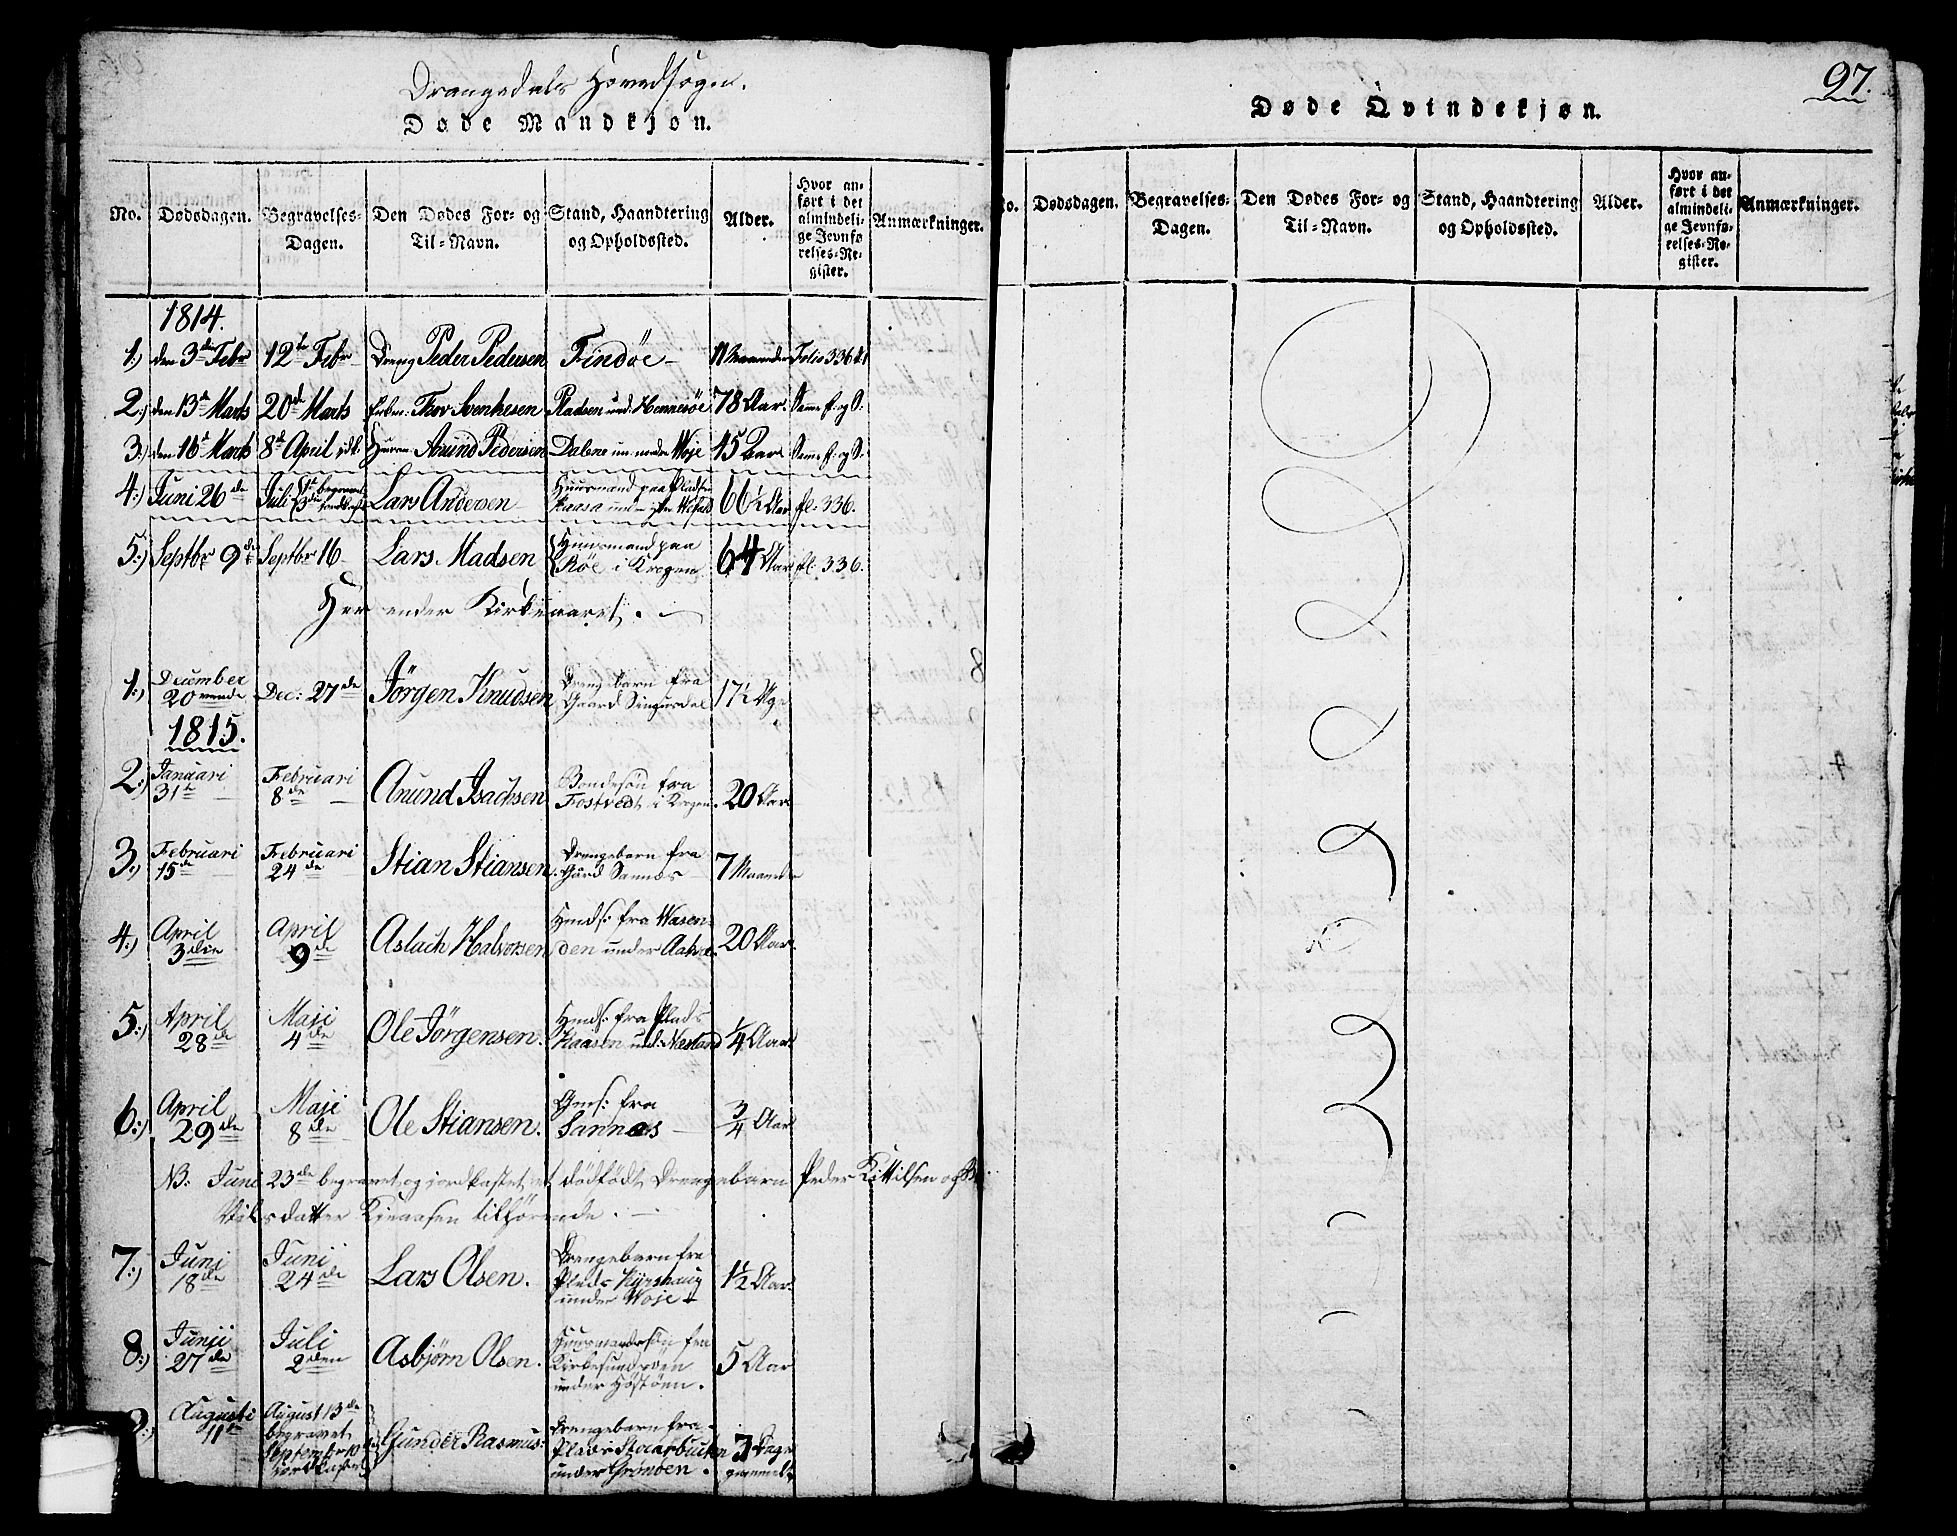 Drangedals Hovedsogn.
Døde Mandkjøn.
No. Dødsdagen. Begravelses-Dagen. Den Dødes For- og Til-Navn. Stand, Haandtering og Opholdssted. Alder. Hvor anført i det almindelige Jevnførelses-Register. Anmærkninger.
1814.
1.) den 3de Febr 12te Febr Dreng Peder Pedersen Findöe 11 Maaneder Folio 336
2.) den 13de Marts 20de Marts Thor Svenkesen Pladsen und: Henneröe 78 Aar. Samme f. og
3.) den 16de Marts 8de April Anund Pedersen Dalene Woje 45 Aar Samme f. og
4.) Juni 26de Juli begravet Lars Andersen Huusmand paa Pladsen
66½ Aar fl. 336.
5.) Septbr 9de Septbr 16 Lars Madsen Huusmand paa
Röe i Krogen 64 Aar fl. 336.
Her ender Kirkeaaret.
1.) December
20vende Dec: 27de Jörgen Knudsen Drengebarn fra
Gaard 17½ Uge
1815.
2.) Januari
31te Februari
8de Anund Isachsen Bondesön fra
Fostvedt i Krogen. 20 Aar
3.) Februari
15de Februari
24de Stian Stiansen Drengebarn fra
Gård Sannæs 7 Maaneder
4.) April
3die April
9de Aslach Halvorsen fra Wasen-
den under 20 Aar
5.) April
28de Maji
4de Ole Jörgensen. fra Plads
Kaasen und: Næsland ¼ Aar
6.) April
29de Maji
8de Ole Stiansen. fra
Sannæs ¾ Aar
NB: Juni 23de begravet og jordkastet et dödfödt Drengebarn Peder Kittilsen og
Nilsdatter tilhörende.
7.) Juni
18de Juni
24de Lars Olsen. Drengebarn fra
Plads
under Woje 1½ Aar.
8.) Junii
27de Juli
2den Asbjørn Olsen. Huusmandssön fra
under 5 Aar
9.) Augusti
11te August 13de
begravet
September
jordkastet Gunder Rasmus: Drengebarn fra
Plads
under Grönden. 3 Dage
gammel
97.
Døde Qvindekjøn.
No. Dødsdagen. Begravelses-Dagen. Den Dødes For- og Til-Navn. Stand, Haandtering og Opholdssted. Alder. Hvor anført i det almindelige Jevnførelses-Register. Anmærkninger.